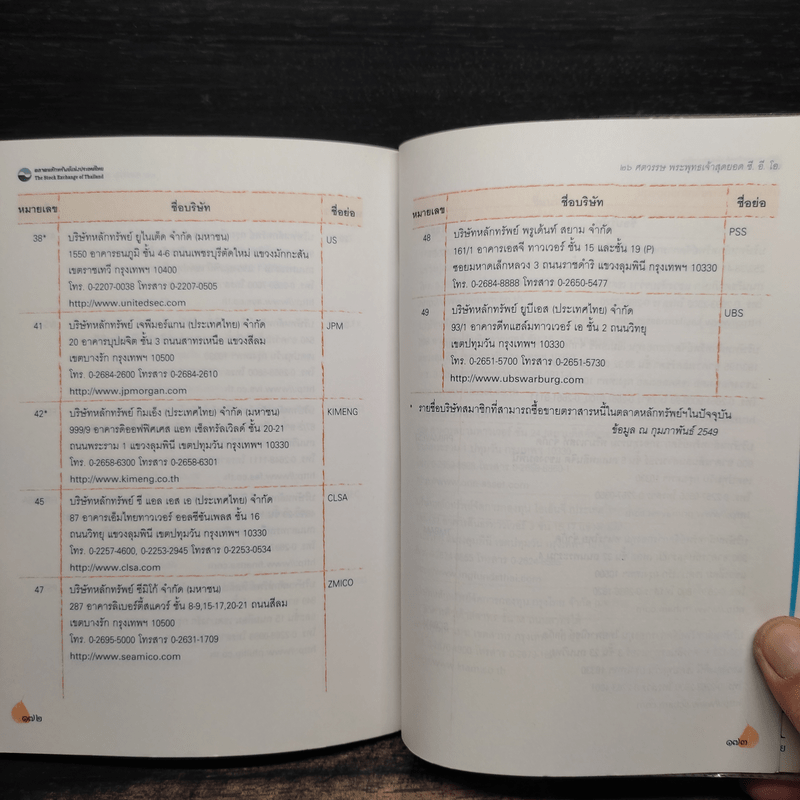 ตลาดหลักทรัพย์แห่งประเทศไทย
The Stock Exchange of Thailand
หมายเลข ชื่อบริษัท ชื่อย่อ
38* บริษัทหลักทรัพย์ ยูไนเต็ด จำกัด (มหาชน) US
1550 อาคารธนภูมิ ชั้น 4-6 ถนนเพชรบุรีตัดใหม่ แขวงมักกะสัน
เขตราชเทวี กรุงเทพฯ 10400
โทร. 0-2207-0038 โทรสาร 0-2207-0505
http://www.unitedsec.com
41 บริษัทหลักทรัพย์ เจพีมอร์แกน (ประเทศไทย) จำกัด JPM
20 อาคารบุปผจิต ชั้น 3 ถนนสาทรเหนือ แขวงสีลม
เขตบางรัก กรุงเทพฯ 10500
โทร. 0-2684-2600 โทรสาร 0-2684-2610
http://www.jpmorgan.com
42* บริษัทหลักทรัพย์ กิมเอ็ง (ประเทศไทย) จำกัด (มหาชน) KIMENG
999/9 อาคารดิออฟฟิศเศส แอท เซ็ลทรัลเวิลด์ ชั้น 20-21
ถนนพระราม 1 แขวงลุมพินี เขตปทุมวัน กรุงเทพฯ 10330
โทร. 0-2658-6300 โทรสาร 0-2658-6301
http://www.kimeng.co.th
45 บริษัทหลักทรัพย์ ซี แอล เอส เอ (ประเทศไทย) จำกัด CLSA
87 อาคารเอ็มไทยทาวเวอร์ ออลซีซั่นเพลส ชั้น 16
ถนนวิทยุ แขวงลุมพินี เขตปทุมวัน กรุงเทพฯ 10330
โทร. 0-2257-4600, 0-2253-2945 โทรสาร 0-2253-0534
http://www.clsa.com
47 บริษัทหลักทรัพย์ ซีมิโก้ จำกัด (มหาชน) ZMICO
287 อาคารลิเบอร์ตี้สแควร์ ชั้น 8-9,15-17,20-21 ถนนสีลม
เขตบางรัก กรุงเทพฯ 10500
โทร. 0-2695-5000 โทรสาร 0-2631-1709
http://www.seamico.com
๑๗๒
๒๖ ศตวรรษ พระพุทธเจ้าสุดยอด ซี. อี. โอ.
หมายเลข ชื่อบริษัท ชื่อย่อ
48 บริษัทหลักทรัพย์ พรูเด้นท์ สยาม จำกัด PSS
161/1 อาคารเอสจี ทาวเวอร์ ชั้น 15 และชั้น 19 (P)
ซอยมหาดเล็กหลวง 3 ถนนราชดำริ แขวงลุมพินี กรุงเทพฯ 10330
โทร. 0-2684-8888 โทรสาร 0-2650-5477
49 บริษัทหลักทรัพย์ ยูบีเอส (ประเทศไทย) จำกัด UBS
93/1 อาคารดีทแฮล์มทาวเวอร์ เอ ชั้น 2 ถนนวิทยุ
เขตปทุมวัน กรุงเทพฯ 10330
โทร. 0-2651-5700 โทรสาร 0-2651-5730
http://www.ubswarburg.com
* รายชื่อบริษัทสมาชิกที่สามารถซื้อขายตราสารหนี้ในตลาดหลักทรัพย์ฯในปัจจุบัน
ข้อมูล ณ กุมภาพันธ์ 2549
๑๗๓